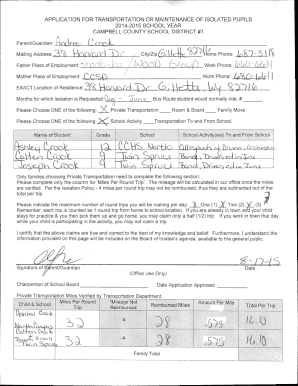 APPLICATION FOR TRANSPORTATION OR MAINTENANCE OF ISOLATED PUPILS
2014-2015 SCHOOL YEAR
CAMPBELL COUNTY SCHOOL DISTRICT #1
Parent/Guardian: Andrea Crook
Mailing Address: 38 Harvard Dr City/Zip Gillette 82716 Home Phone: 687-3118
Father Place of Employment Wood Group Work Phone: 660-6611
Mother Place of Employment CCSD Work Phone: 680-6611
EXACT Location of Residence: 38 Harvard Dr. Gillette, Wy 82716
Months for which Isolation is Requested Aug - June Bus Route student would normally ride: #
Please Choose ONE of the following: X Private Transportation Room & Board Family Move
Please Choose ONE of the following X School Activity Transportation To and From School
Name of Student Grade School School Activity(ies) To and From School
Ashley Crook 12 CCHS North All aspects of Drama, Orchestra
Colton Crook 9 Twin Spruce Band, Drivers Ed in June
Joseph Crook 9 Twin Spruce Band, Drivers Ed in June
Only families choosing Private Transportation need to complete the following section:
Please complete only the column for 'Miles Per Round Trip'. The mileage will be calculated in our office once the miles
are verified. Per the Isolation Policy - 4 miles per round trip may not be reimbursed, thus they are subtracted out of the
total miles per trip.
Please indicate the maximum number of round trips you will be making per day. One (1) Two (2) (3)
Remember, each trip is counted as 1 round trip from home to school location. If you are already in town and your child
stays for practice & you then pick them up and go home, you may claim only a half (1/2) trip. If you work in town that day,
while your child is participating in the activity, you may not claim a trip.
I certify that the above claims are true and correct to the best of my knowledge and belief. Furthermore, I understand the
information provided on this page will be included on the Board of trustee's agenda, available to the general public.
8-17-15
Signature of Parent/Guardian Date
(Office Use Only)
Chairperson of School Board Date Application Approved
Private Transportation Miles Verified by Transportation Department:
Child & School Miles Per Round Trip *Mileage Not Reimbursed Reimbursed Miles Amount Per Mile Total Per Trip
Crook
North 32 -4 28 .575 16.10
Crook
Twin Spruce 32 -4 28 .575 16.10
Family Total